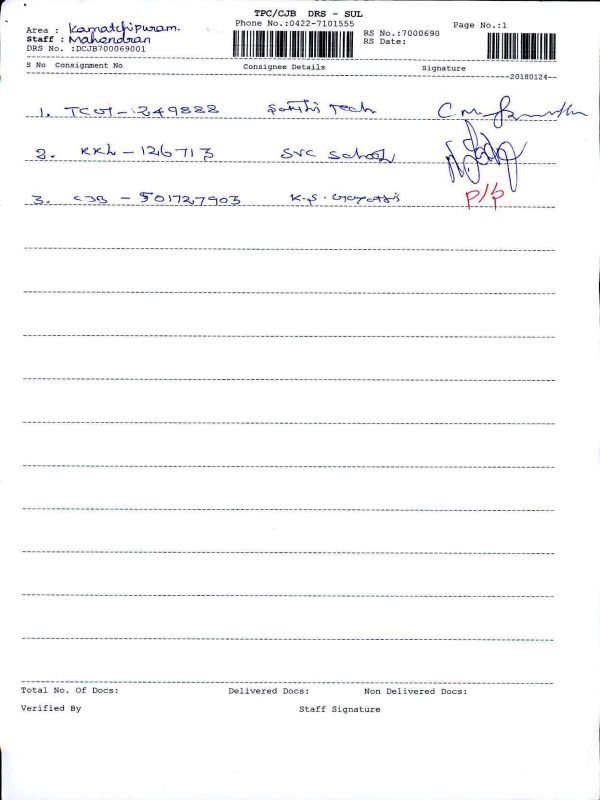 TPC/CJB DRS - SUL
Phone No.:0422-7101555
Page No.:1
Area : Kamatchipuram.
Staff : Mahendran
DRS No. :DCJB700069001
RS No.:7000690
RS Date:
S No Consignment No Consignee Details Signature
20180124
1. TCOT - 249888 Sakthi Tech
2. KKL - 126713 SVC School
3. CJB - 501727903 K.S. P/P
Total No. Of Docs: Delivered Docs: Non Delivered Docs:
Verified By Staff Signature